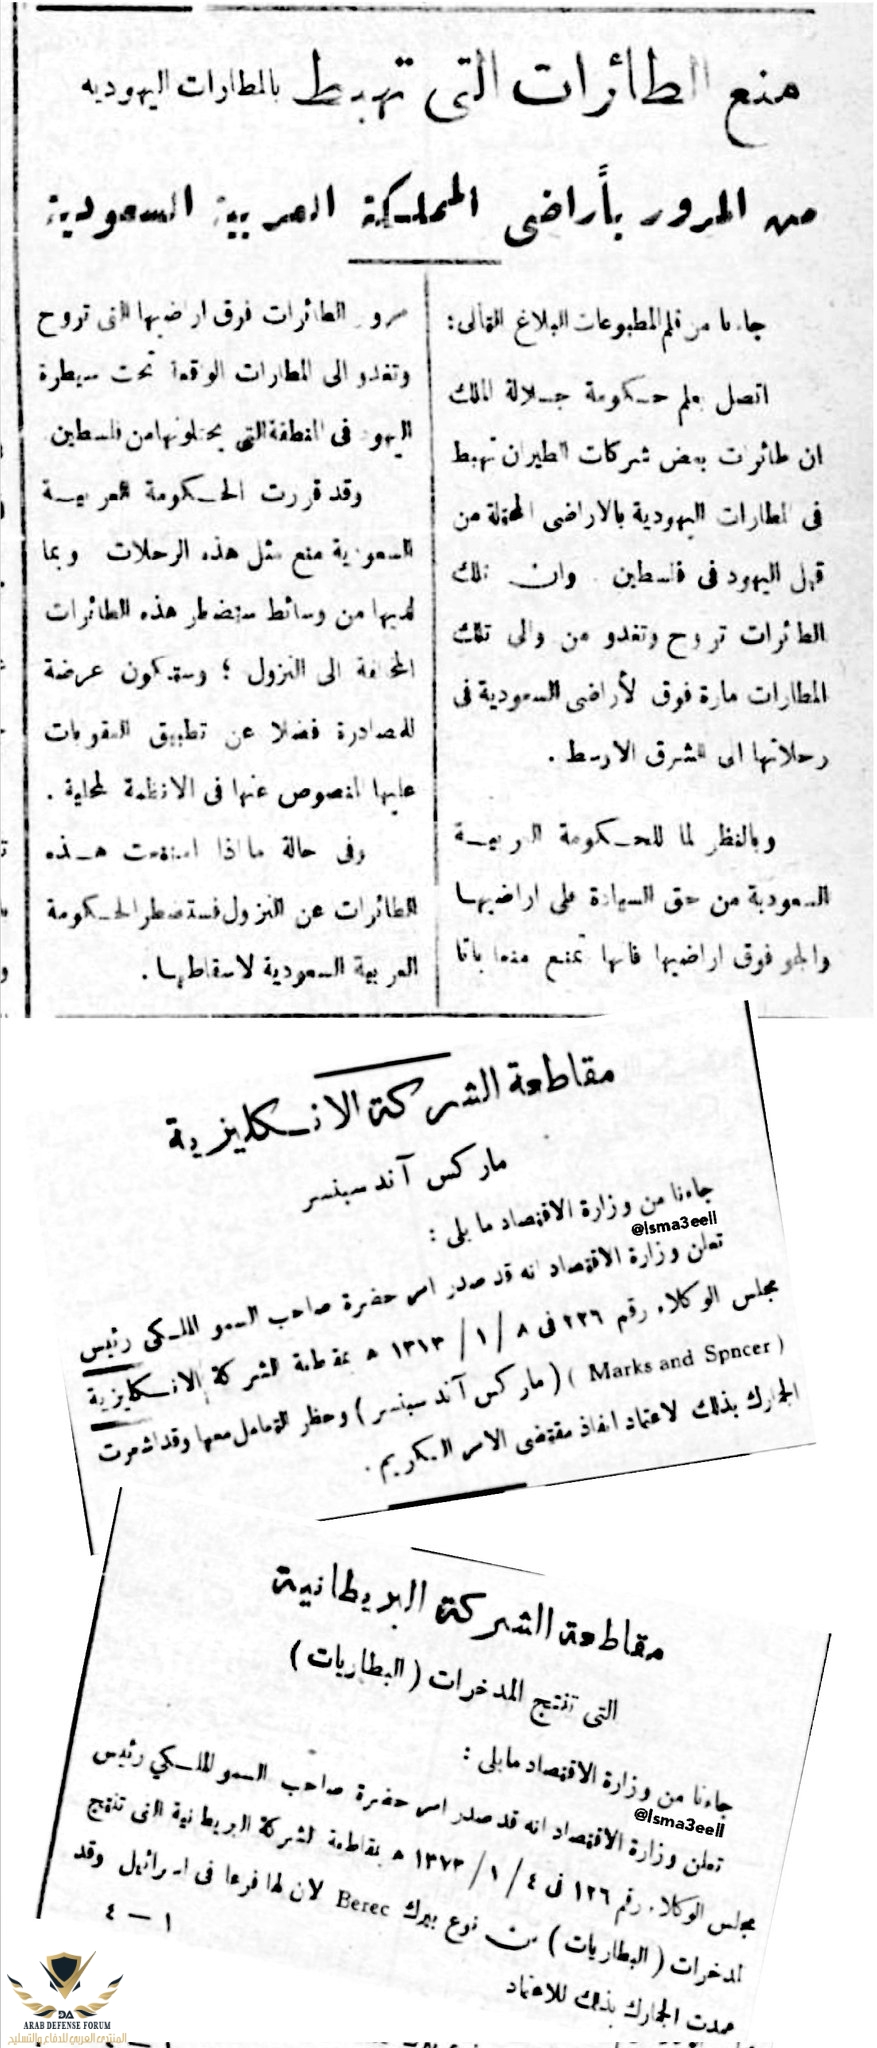 منع الطائرات التى تهبط بالمطارات اليهوديه
من المرور بأراضى المملكة العربية السعودية
جاءنا من قلم المطبوعات البلاغ التالى:
اتصل بعلم حكومة جلالة الملك
ان طائرات بعض شركات الطيران تهبط
فى المطارات اليهودية بالاراضى المحتلة من
قبل اليهود فى فلسطين . وان تلك
الطائرات تروح وتغدو من والى تلك
المطارات مارة فوق الأراضى السعودية فى
رحلاتها الى الشرق الاوسط .
وبالنظر لما للحكومة العربية
السعودية من حق السيادة على اراضيها
والجو فوق اراضيها فانها تمنع منعا باتا
مرور الطائرات فوق اراضيها التى تروح
وتغدو الى المطارات الواقعة تحت سيطرة
اليهود فى المنطقة التى يحتلونها من فلسطين
وقد قررت الحكومة العربية
السعودية منع مثل هذه الرحلات وبما
لديها من وسائط ستضطر هذه الطائرات
المخالفة الى النزول ؛ وستكون عرضة
للمصادرة فضلا عن تطبيق العقوبات
عليها المنصوص عنها فى الانظمة المحلية .
وفى حالة ما اذا امتنعت هذه
الطائرات عن النزول فستضطر الحكومة
العربية السعودية لاسقاطها .
مقاطعة الشركة الانكليزية
ماركس آند سبنسر
جاءنا من وزارة الاقتصاد ما يلى :
@Isma3eell
تعلن وزارة الاقتصاد انه قد صدر امر حضرة صاحب السمو الملكى رئيس
مجلس الوكلاء رقم ٢٢٦ فى ٨ / ١ / ١٣١٣ ه بمقاطعة الشركة الانكليزية
( Marks and Spncer ) ( ماركس آند سبنسر ) وحظر التعامل معها وقد اشعرت
الجمارك بذلك لاعتماد انفاذ مقتضى الامر الكريم .
مقاطعة الشركة البريطانية
التى تنتج المدخرات ( البطاريات )
جاءنا من وزارة الاقتصاد مايلى :
@Isma3eell
تعلن وزارة الاقتصاد انه قد صدر امر حضرة صاحب السمو الملكي رئيس
مجلس الوكلاء رقم ١٢٦ فى ٤ / ١ / ١٣٧٣ ه بمقاطعة الشركة البريطانية التى تنتج
المدخرات ( البطاريات ) من نوع بيرك Berec لان لها فرعا فى اسرائيل وقد
عمدت الجمارك بذلك للاعتماد
١ — ٤
DA
ARAB DEFENSE FORUM
المنتدى العربي للدفاع والتسليح